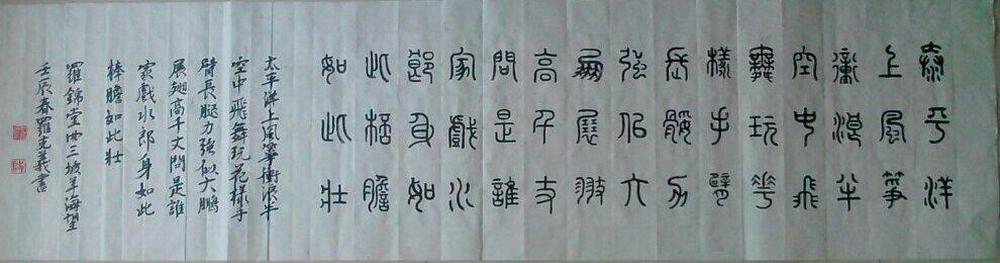 泰平洋
上風箏
衝浪半
空中飛
舞玩花
樣手臂
長腿力
強似大
鵬展翅
高千丈
問是誰
家戲水
郎身如
此棒膽
如此壯
太平洋上風箏衝浪半
空中飛舞玩花樣手
臂長腿力強似大鵬
展翅高千丈問是誰
家戲水郎身如此
棒膽如此壯
羅錦堂坡羊海望
壬辰春羅義書